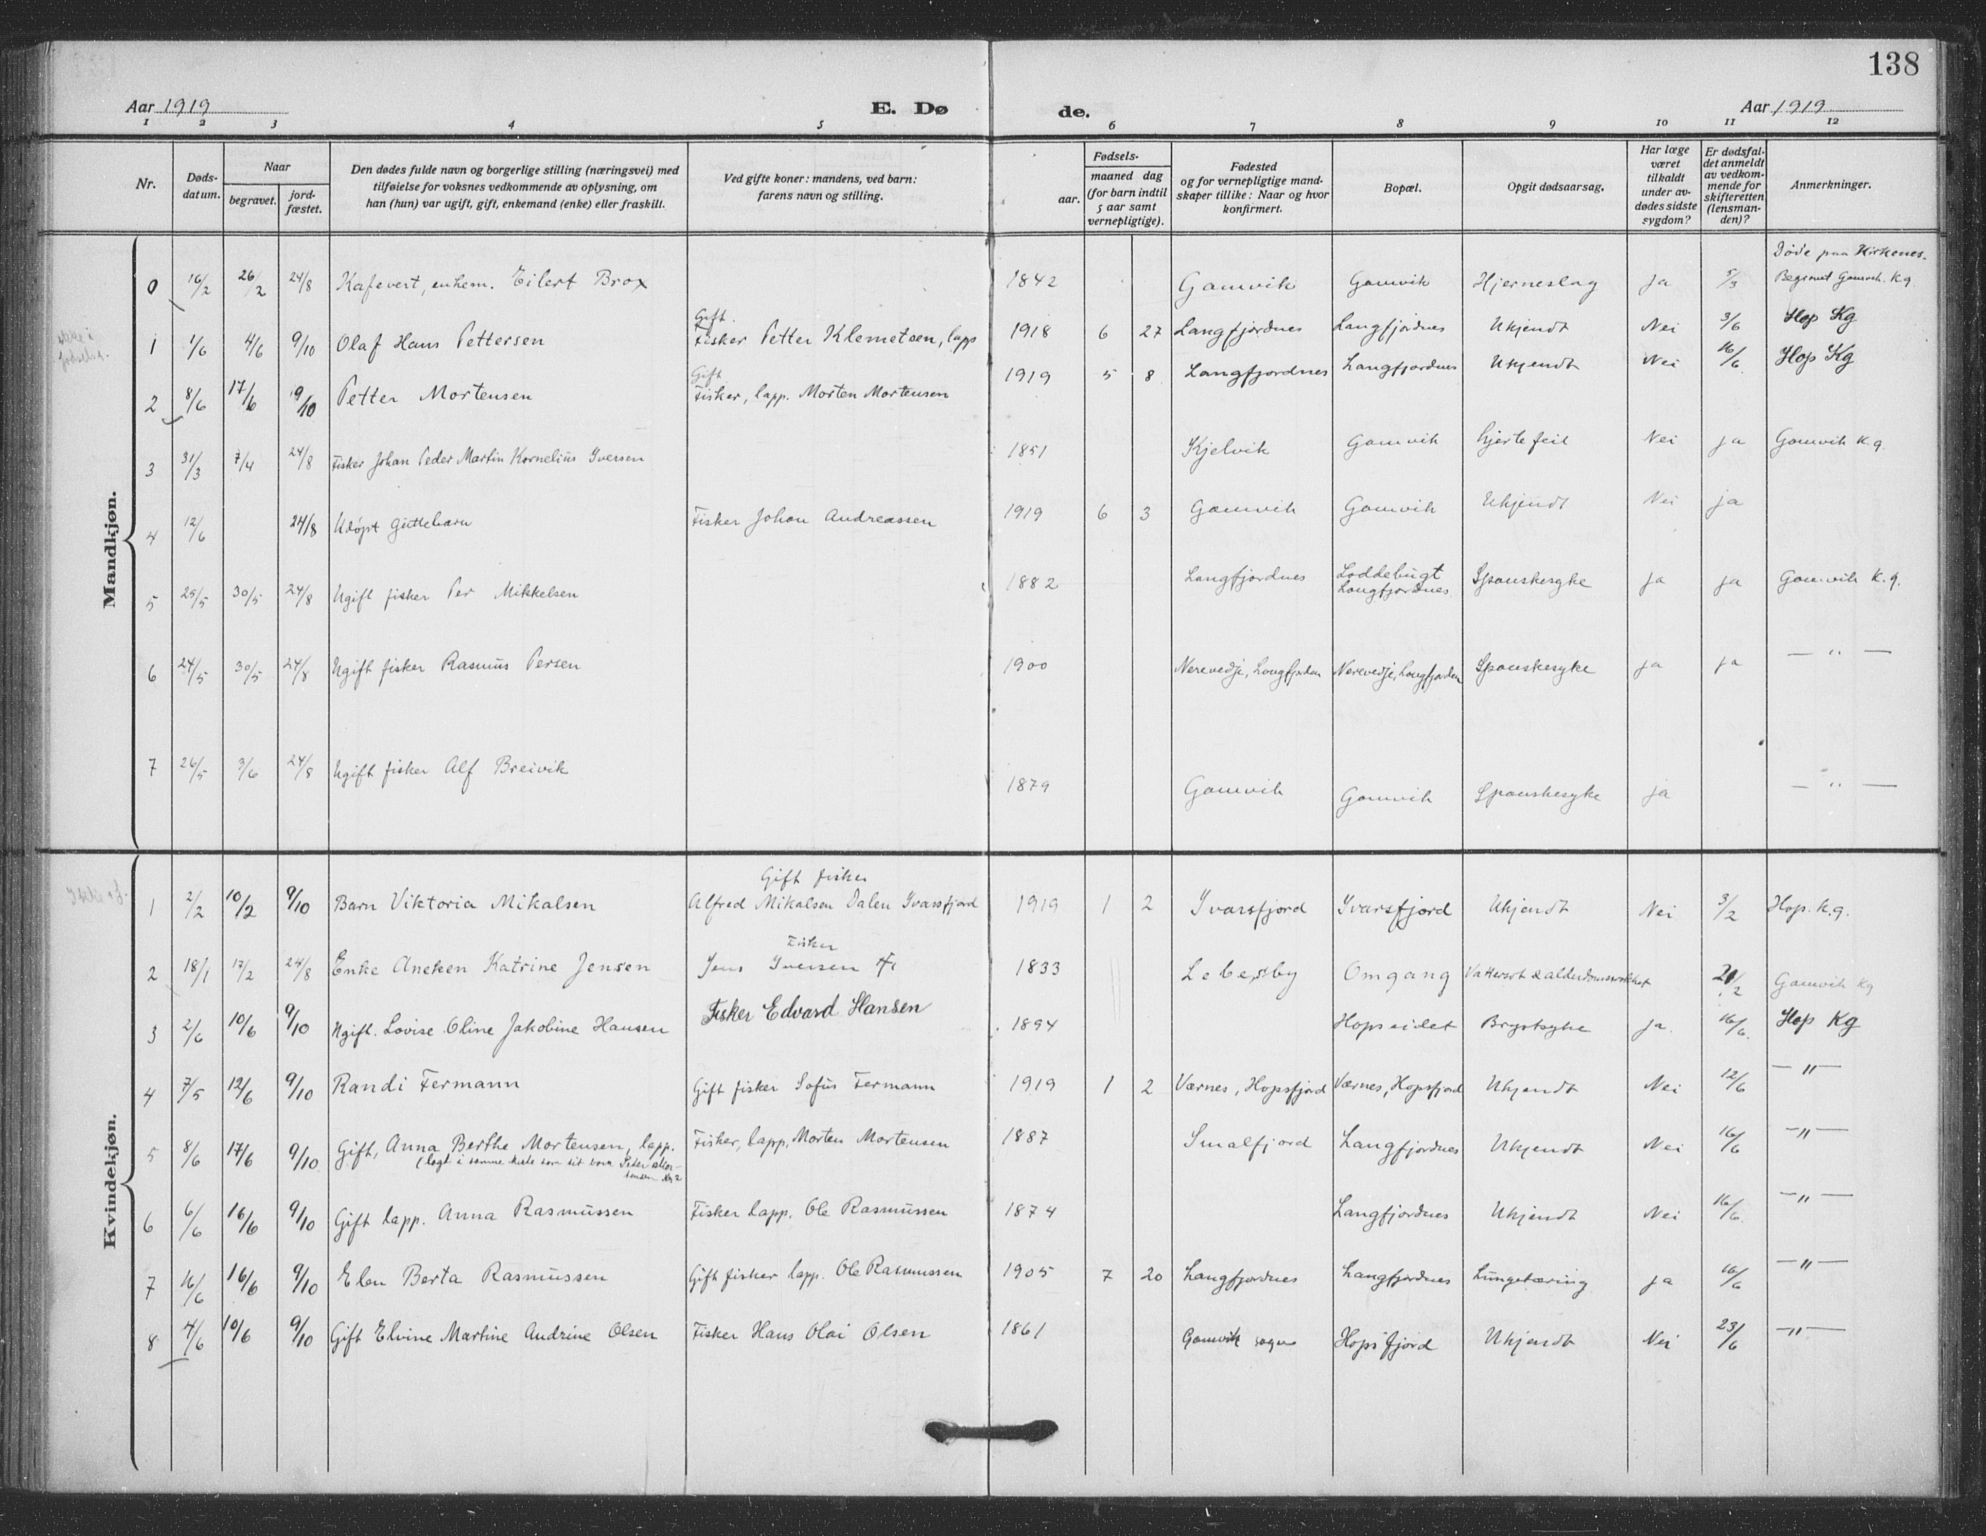 138
Aar 1919 E. Dø de. Aar 1919
1 2 3 4 5 6 7 8 9 10 11 12
Nr.
Døds-
datum.
Naar
begravet.
jord-
fæstet.
Den dødes fulde navn og borgerlige stilling (næringsvei) med
tilføielse for voksnes vedkommende av oplysning, om
han (hun) var ugift, gift, enkemand (enke) eller fraskilt.
Ved gifte koner: mandens, ved barn:
farens navn og stilling.
aar.
Fødsels-
maaned dag
(for barn indtil
5 aar samt
vernepligtige).
Fødested
og for vernepligtige mand-
skaper tillike: Naar og hvor
konfirmert.
Bopæl.
Opgit dødsaarsag.
Har læge
været
tilkaldt
under av-
dødes sidste
sygdom?
Er dødsfal-
det anmeldt
av vedkom-
mende for
skifteretten
(lensman-
den)?
Anmerkninger.
Mandkjøn.
Døde paa Kirkenes.
0 16/2 26/2 24/8 Kafevert, enkem. Eilert Brox 1842 Gamvik Gamvik Hjerneslag Ja 5/3 Begravet Gamvik. Kg.
Gift.
1 1/6 4/6 9/10 Olaf Hans Pettersen Fisker Petter Klemetsen, lapp 1918 6 27 Langfjordnes Langfjordnes Ukjendt Nei 3/6 Hop Kg
Gift
2 8/6 17/6 9/10 Petter Mortensen Fisker, lapp. Morten Mortensen 1919 5 8 Langfjordnes Langfjordnes Ukjendt Nei 16/6 Hop Kg
3 31/3 7/4 24/8 Fisker Johan Peder Martin Kornelius Iversen 1851 Kjelvik Gamvik hjertefeil Nei ja Gamvik K.g.
4 12/6 24/8 Udøpt guttebarn Fisker Johan Andreassen 1919 6 3 Gamvik Gamvik Ukjendt Nei ja
5 25/5 30/5 24/8 Ugift fisker Per Mikkelsen 1882 Langfjordnes Loddebugt Langfjordnes Spanskesyke ja ja Gamvik K.g.
6 24/5 30/5 24/8 Ugift fisker Rasmus Persen 1900 Nerevedje, Langfjorden Nerevedje, Langfjorden Spanskesyke ja ja — " —
7 26/5 3/6 24/8 Ugift fisker Alf Breivik 1879 Gamvik Gamvik Spanskesyke ja — " —
Kvindekjøn.
Gift fisker
1 2/2 10/2 9/10 Barn Viktoria Mikalsen Alfred Mikalsen Dalen Ivarsfjord 1919 1 2 Ivarsfjord Ivarsfjord Ukjendt Nei 3/2 Hop. K.g.
Fisker
2 18/1 17/2 24/8 Enke Aneken Katrine Jensen Jens Iversen 1833 Lebesby Omgang 21/2 Gamvik Kg
3 2/6 10/6 9/10 Ugift. Lovise Oline Jakobine Hansen Fisker Edvard Hansen 1894 Hopseidet Brystsyke ja. 16/6. Hop Kg
4 7/5 12/6 9/10 Randi Fermann Gift fisker Sofus Fermann 1919 1 2 Værnes, Hopsfjord Værnes, Hopsfjord Ukjendt Nei 12/6 — " —
5 8/6 17/6 9/10 Gift, Anna Berthe Mortensen, lapp. Fisker, lapp, Morten Mortensen 1887 Smalfjord Langfjordnes Ukjendt Nei 16/6 — " —
(lagt i samme kiste som sit barn Peder Mor-
tensen No 2
6 6/6 16/6 9/10 Gift lapp. Anna Rasmussen Fisker lapp. Ole Rasmussen 1874 Langfjordnes Ukjendt Nei 16/6. — " —
7 16/6 16/6 9/10 Elen Berta Rasmussen Gift fisker lapp. Ole Rasmussen 1905 7 20 Langfjordnes Langfjordnes Lungetæring ja 16/6 — " —
8 4/6 10/6 9/10 Gift Elvine Martine Andrine Olsen Fisker Hans Olai Olsen 1861 Gamvik sogn Hopsfjord Ukjendt Nei 23/6 — " —